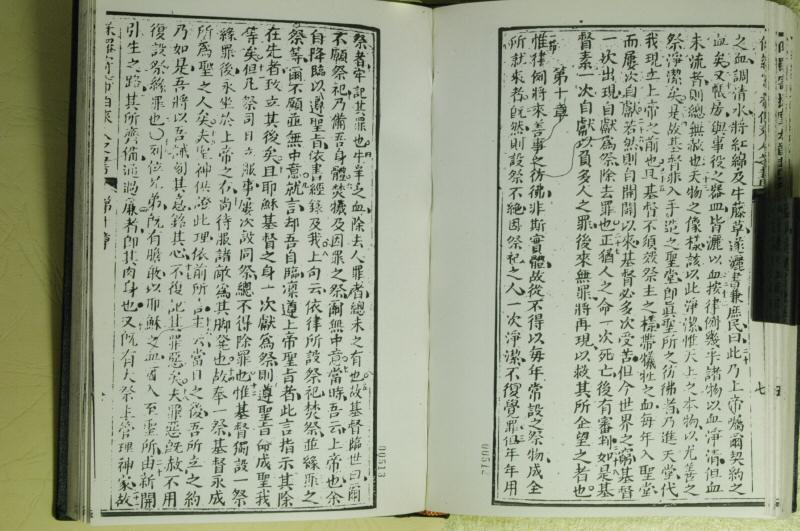 之血調清水將紅綿及牛藤草遂灑書兼庶民曰此乃上帝囑爾契約之
血矣又帳房與事役之器血皆灑以血按律例幾乎諸物以血淨清但血
未流者則總無赦也天物之像樣該以此淨潔惟天上之本物以尤善之
祭淨潔矣是故基督非入手造之聖堂即眞聖所之彷彿者乃進天堂代
我現立上帝之前也且基督不須效祭主之樣帶犧牲之血每年入聖堂
而屢次自獻若然則自開闢以來基督必多次受苦但今世界之窮基督
一次出現自獻爲祭除去罪也正猶人之命一次死亡後有審判如是基
督素一次自獻以負多人之罪後來無罪將再現以救其所企望之者也
第十章
惟律例將來善事之彷彿非斯實體故從不得以每年常設之祭物成全
所就來者旣然則設祭不絕因祭祀之人一次淨潔不復覺罪但年年用
祭者牢記其罪也牛羊之血除去人罪者總未之有也故基督臨世曰爾
不願祭祀乃備吾身體焚犧及因罪之祭爾無中意當時吾云上帝也余
自降臨以遵聖旨依書經錄及我上句云依律所設祭祀焚祭並緣罪之
祭等爾不願並無中意就言却吾自臨凜遵上帝聖旨者此言指示其除
在先者致立其後矣且耶穌基督之身一次獻爲祭則遵聖旨命成聖我
等矣但凡祭司日立服事屢次設同祭總不得除罪也惟基督獨設一祭
緣罪後永坐於上帝之右尚待服諸敵爲其脚凳也故奉一祭基督永成
所爲聖之人矣夫聖神供證此理依前所言主云當日之後吾所立之約
乃如是吾將以吾誡刻其心不復記其罪惡矣夫罪惡旣赦不用
復設祭緣罪也列位兄弟旣有膽敢以耶穌之血而入至聖所由新開
引生之路其所齊備通過簾者即其肉身也又旣有大祭主管理神家故
00513